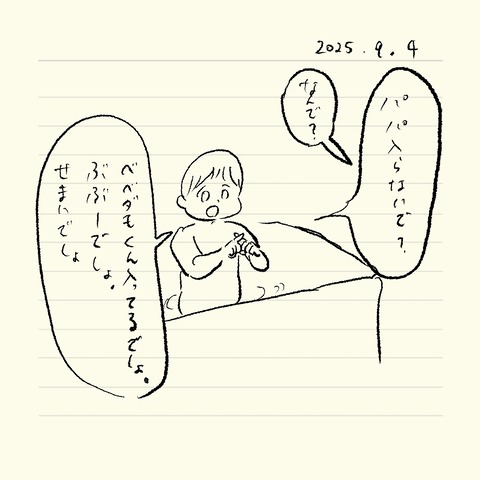 2025.9.4
パパ入らないで?
なんで?
ベベダモくん入ってるでしょ。
ぶぶーでしょ。
せまいでしょ